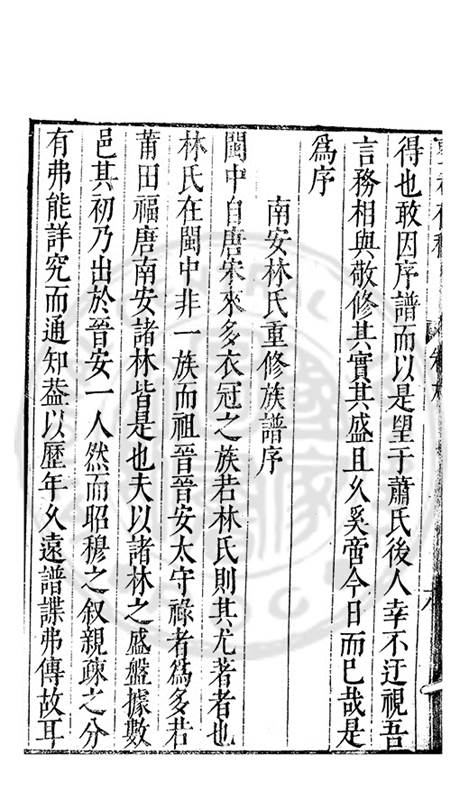 得也敢因序譜而以是望于蕭氏後人幸不迂視吾
言務相與敬修其實其盛且久奚啻今日而已哉是
爲序
南安林氏重修族譜序
閩中自唐宋來多衣冠之族若林氏則其尤著者也
林氏在閩中非一族而祖晉晉安太守祿者爲多若
莆田福唐南安諸林皆是也夫以諸林之盛盤據數
邑其初乃出於晉安一人然而昭穆之叙親疎之分
有弗能詳究而通知葢以歷年久遠譜諜弗傳故耳